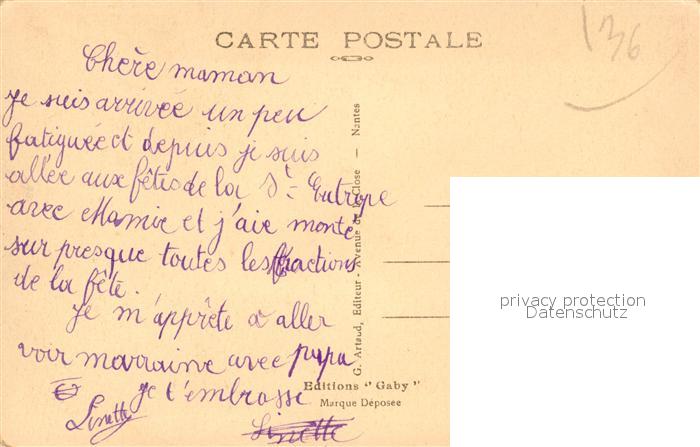 CARTE POSTALE
136
Chère maman
je suis arrivée un peu
fatiguée et depuis je suis
allée aux fêtes de la St-Eutrope
avec Mamie et j'aie monté
sur presque toutes les attractions
de la fête.
Je m'apprête a aller
voir marraine avec papa
je t'embrasse
Linette
Linette
G. Artaud, Editeur - Avenue de la Close - Nantes
Editions "Gaby"
Marque Déposée
privacy protection
Datenschutz